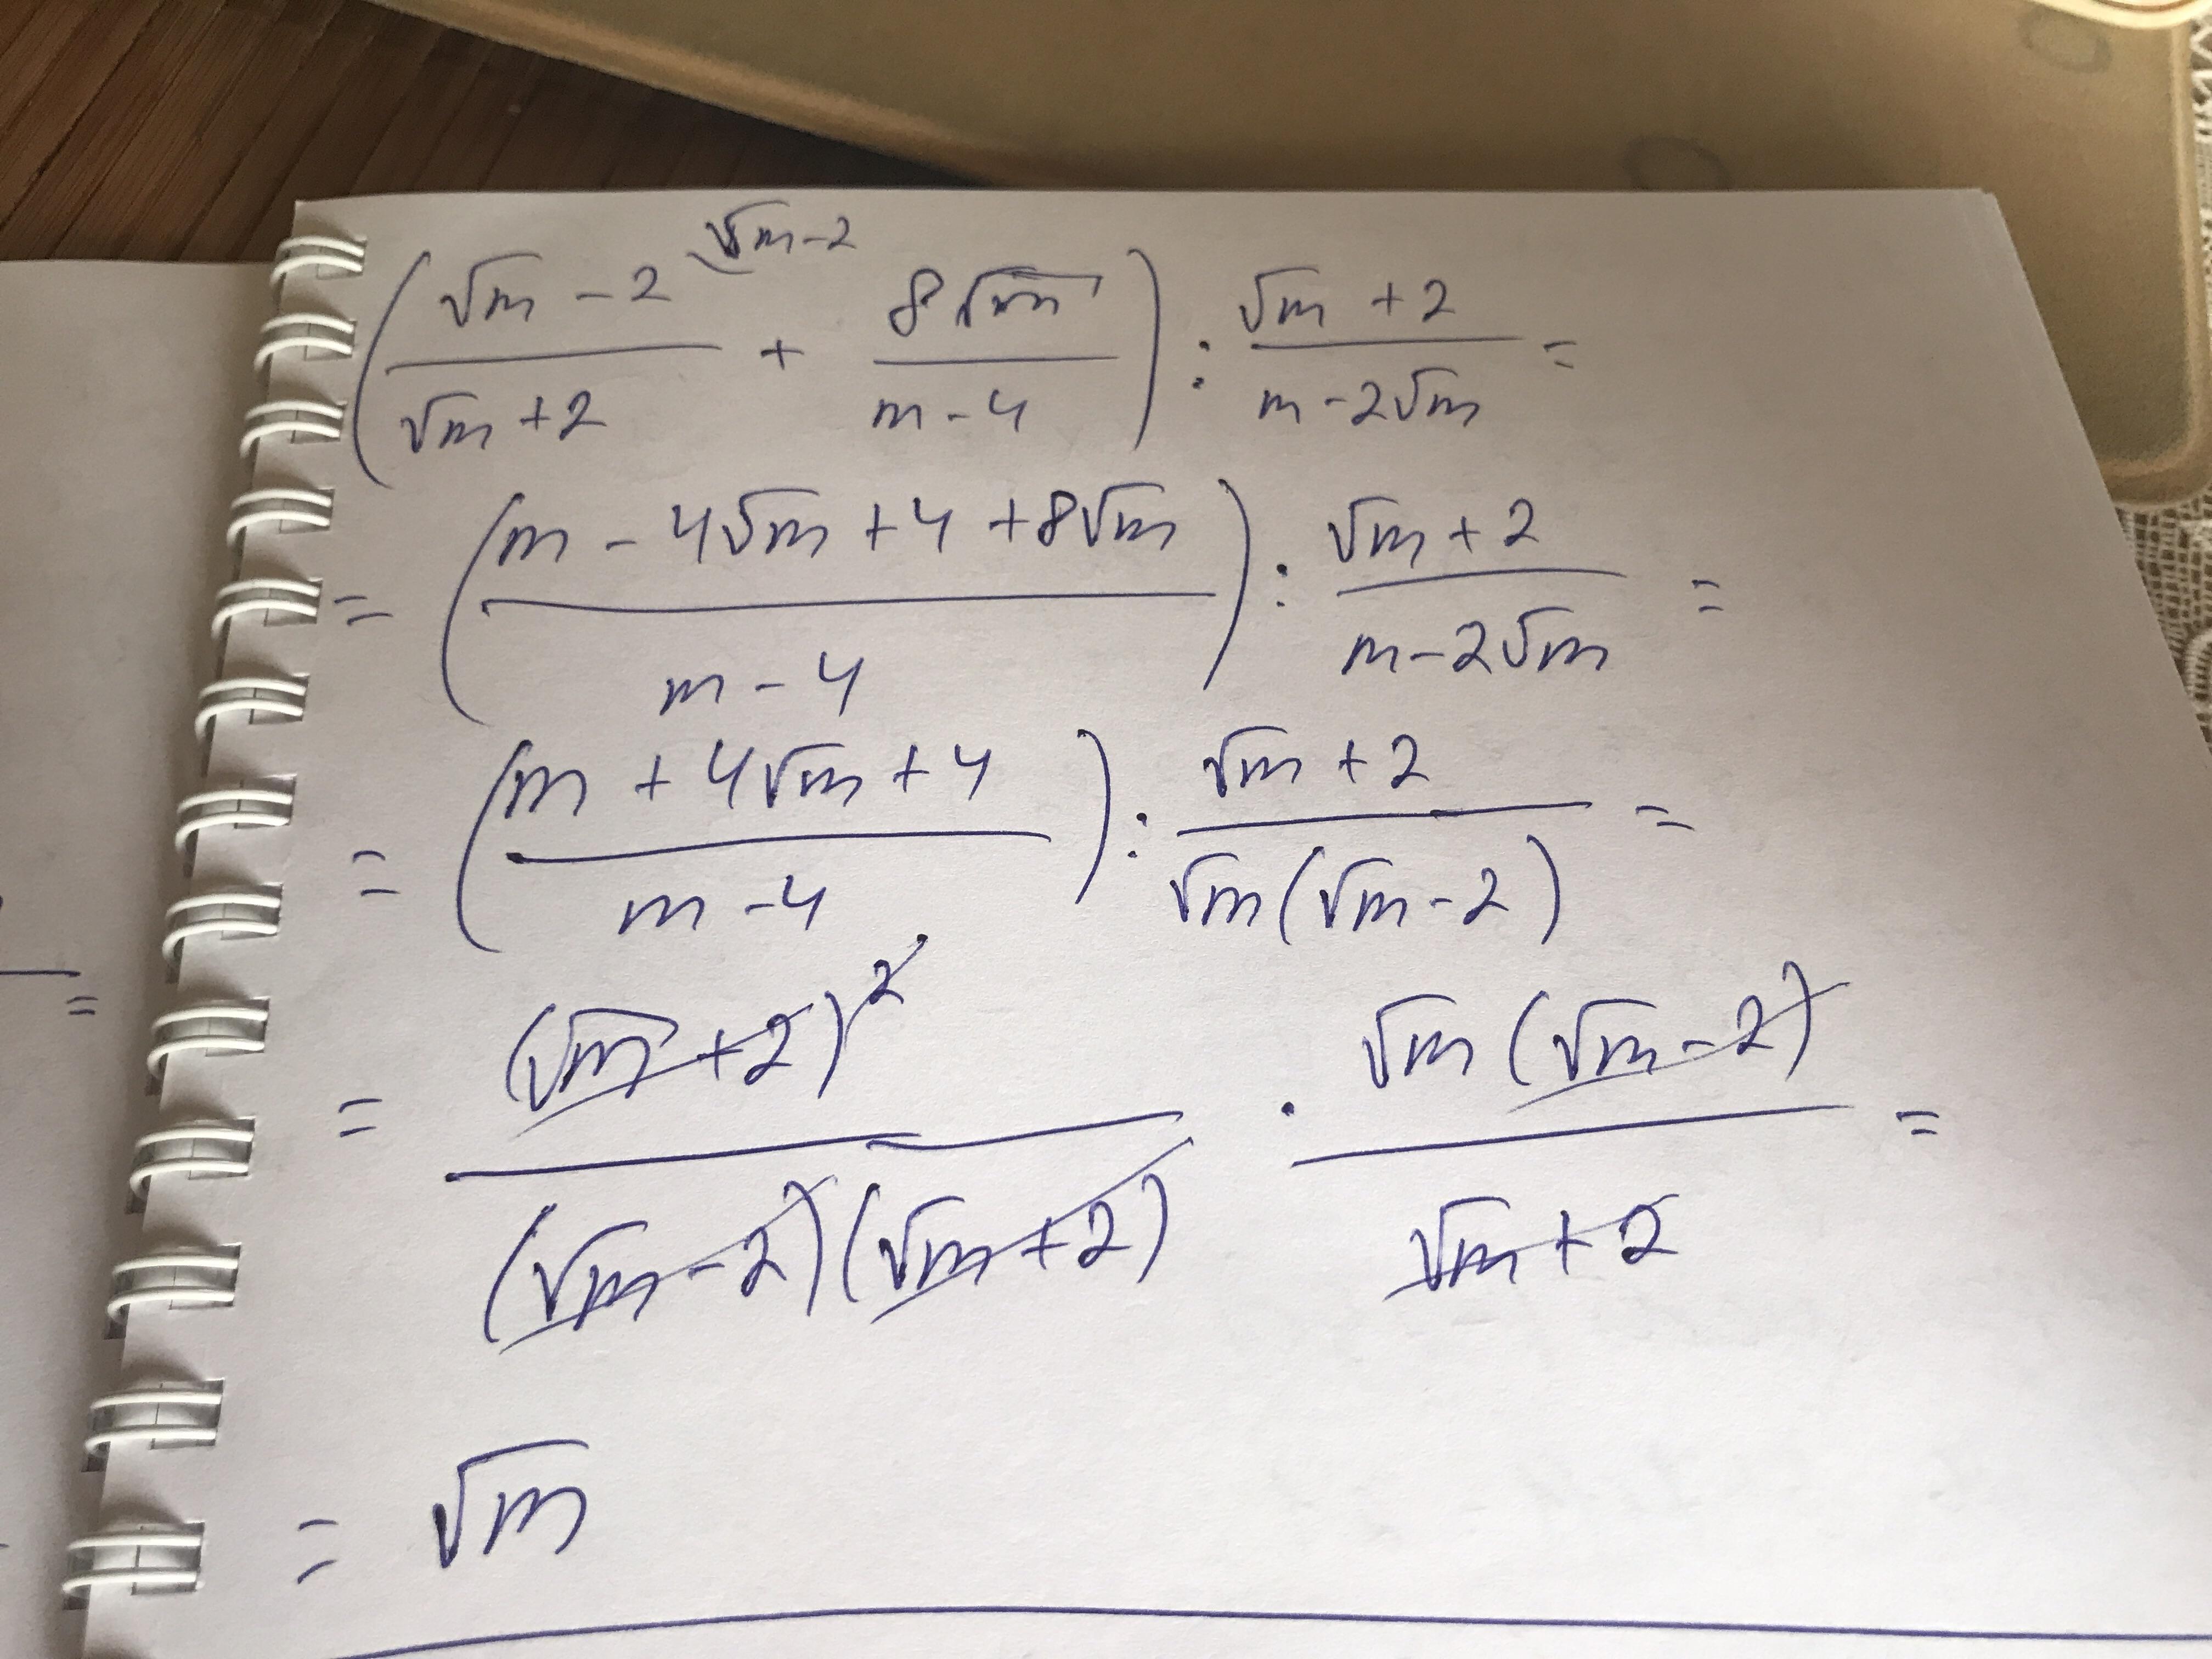 ((√m - 2)/(√m + 2) ^(√m - 2) + 8√m/(m - 4)) : (√m + 2)/(m - 2√m) =
= ((m - 4√m + 4 + 8√m)/(m - 4)) : (√m + 2)/(m - 2√m) =
= ((m + 4√m + 4)/(m - 4)) : (√m + 2)/(√m(√m - 2)) =
= (√m + 2)²/((√m - 2)(√m + 2)) · √m(√m - 2)/(√m + 2) =
= √m